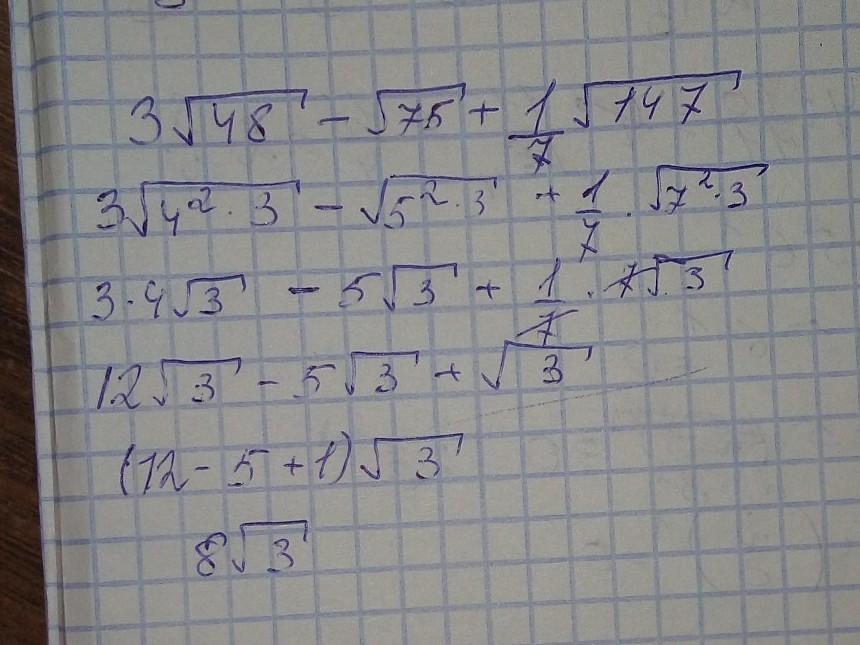 3√48 - √75 + 1/7 √147
3√4²·3 - √5²·3 + 1/7 · √7²·3
3·4√3 - 5√3 + 1/7 · 7√3
12√3 - 5√3 + √3
(12 - 5 + 1)√3
8√3